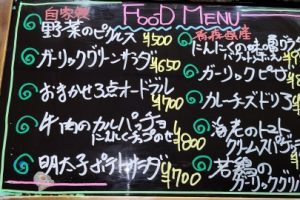 FOOD MENU
自家製
野菜のピクルス ¥500
ガーリックグリーンサラダ ¥650
おまかせ3点オードブル
¥700
牛肉のカルパッチョ
¥800
明太子ポテトサラダ
¥700
青森県産
にんにくの味噌
ガーリックピ
カレーチーズドリ
海老のトマト
クリームスパゲ
若鶏の
ガーリックグリ